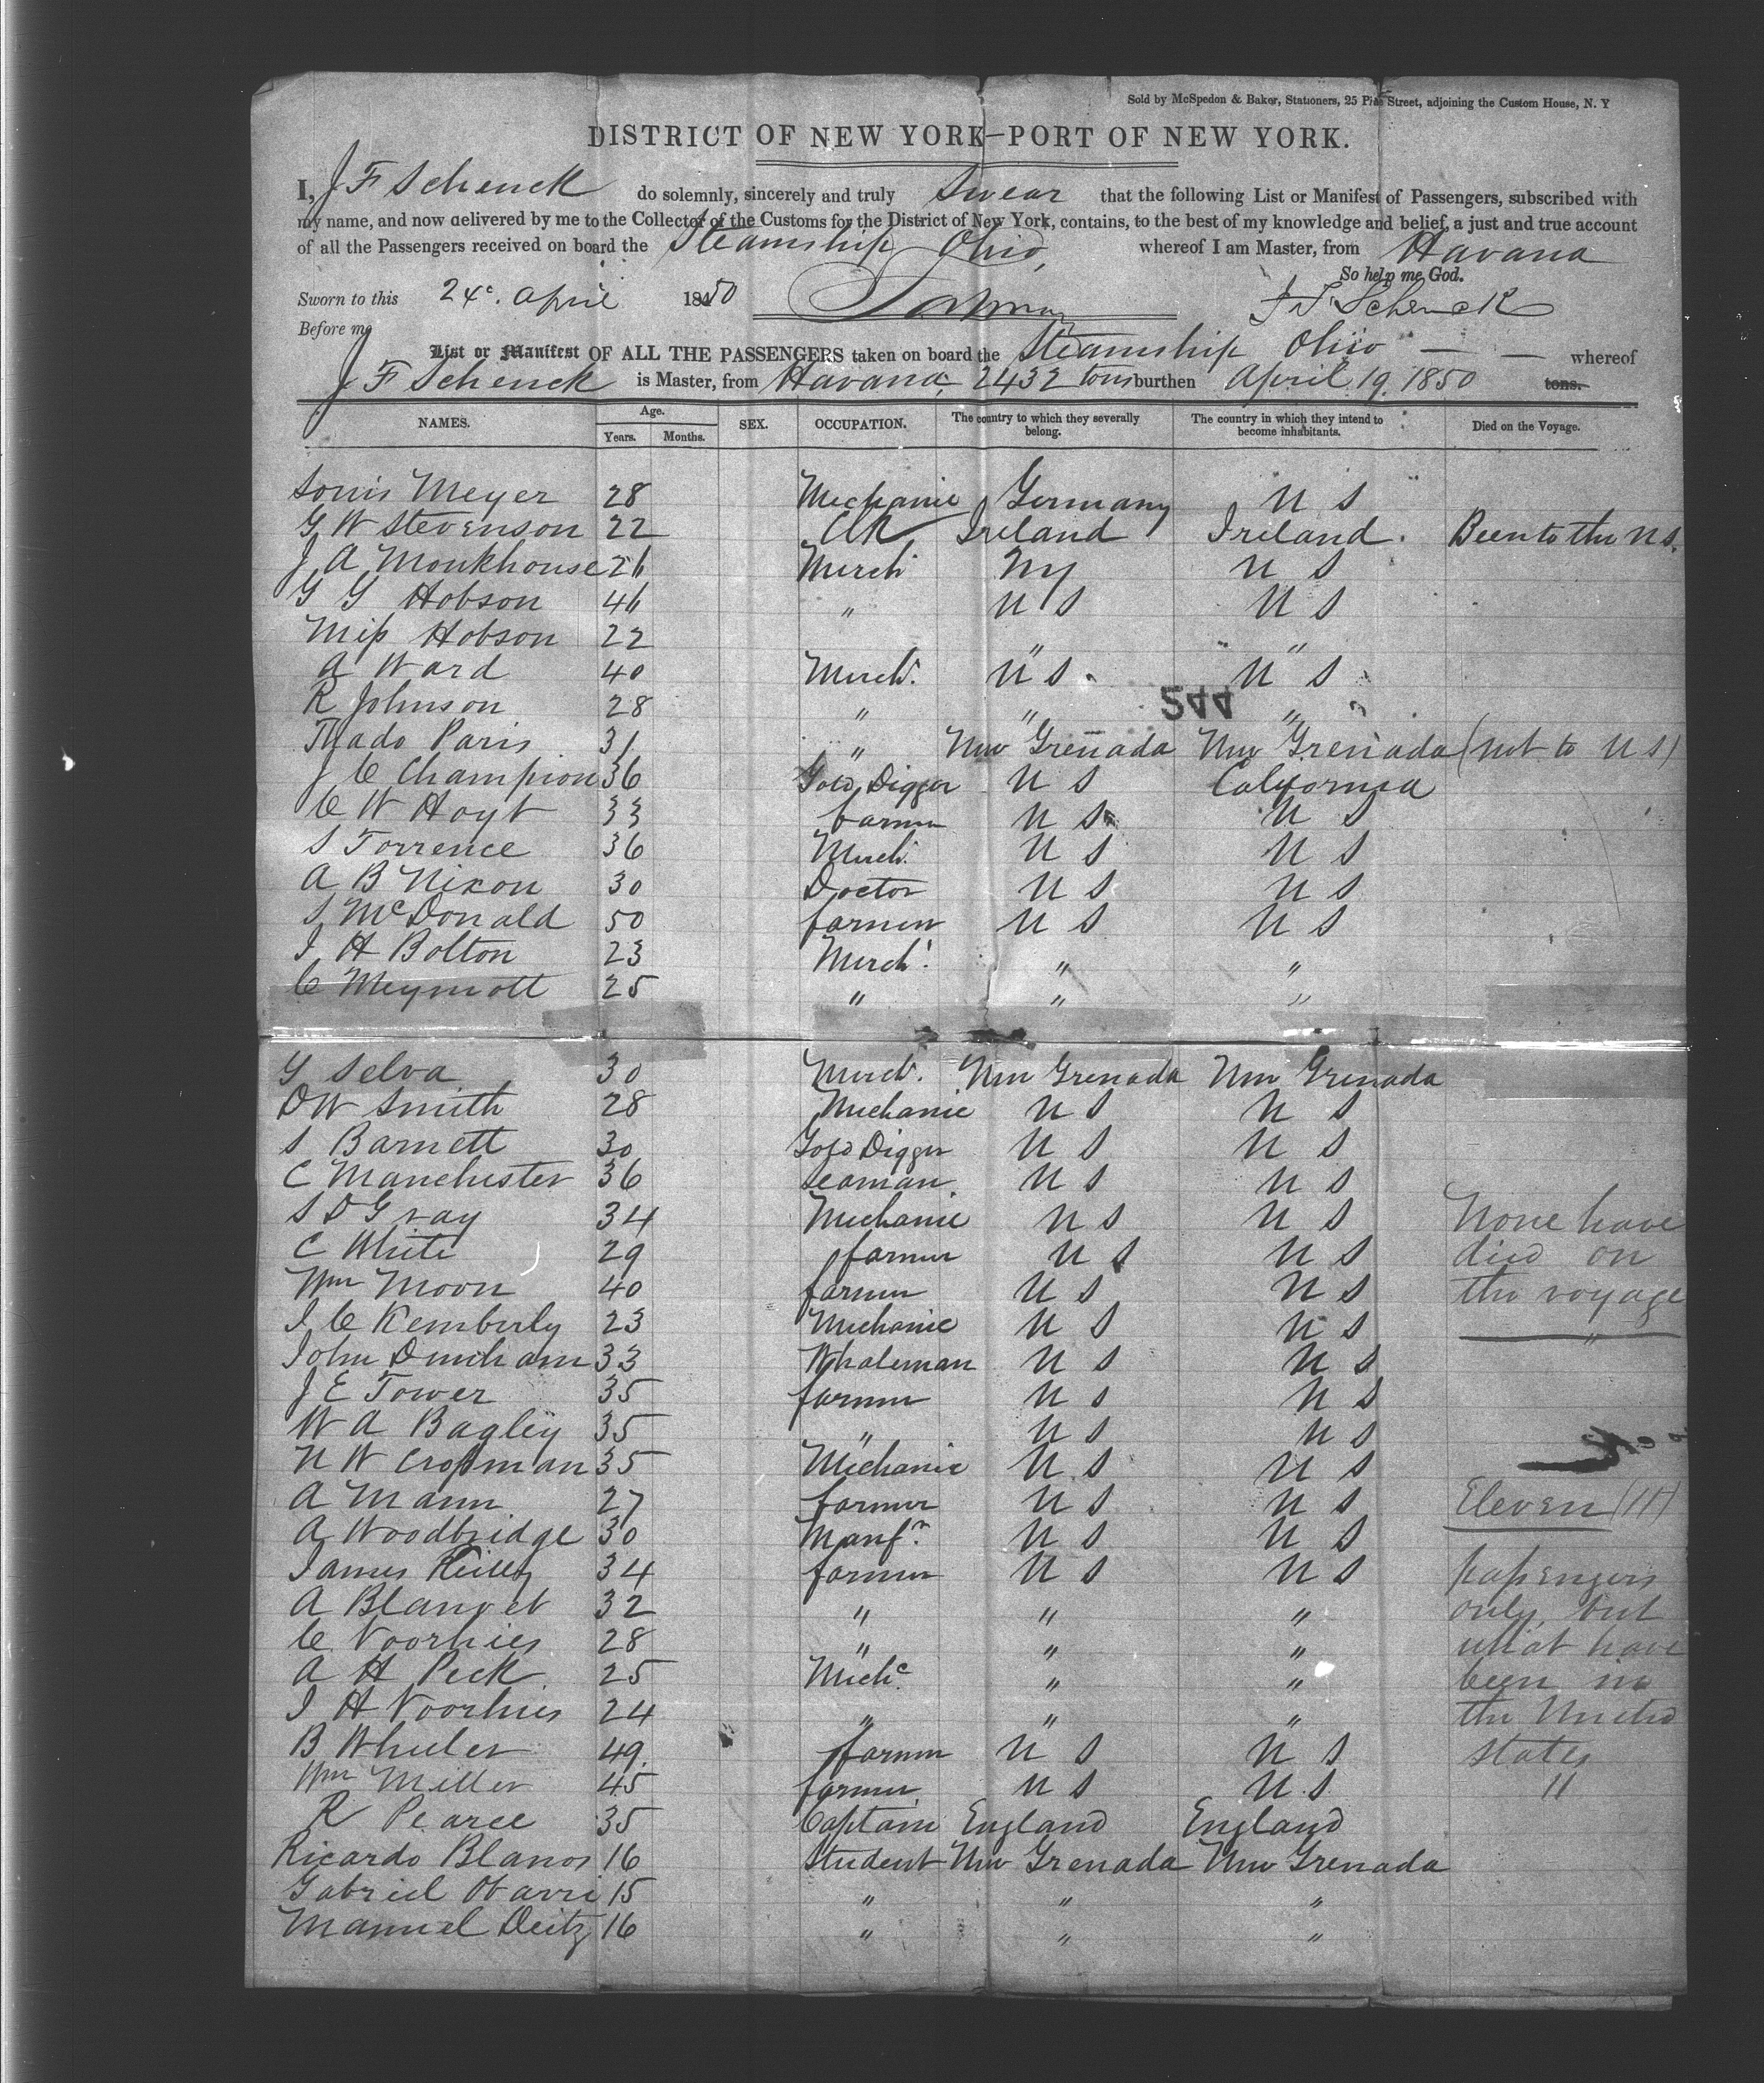 Sold by McSpedon & Baker, Stationers, 25 Pine Street, adjoining the Custom House, N. Y
DISTRICT OF NEW YORK—PORT OF NEW YORK.
I, J F Schenck do solemnly, sincerely and truly swear that the following List or Manifest of Passengers, subscribed with
my name, and now delivered by me to the Collector of the Customs for the District of New York, contains, to the best of my knowledge and belief, a just and true account
of all the Passengers received on board the Steamship Ohio, whereof I am Master, from Havana
So help me God.
Sworn to this 24. April 1850 J F Schenck
Before me
List or Manifest OF ALL THE PASSENGERS taken on board the Steamship Ohio — — whereof
J F Schenck is Master, from Havana, 2432 tons burthen April 19. 1850 tons.
NAMES. Age. Years. Months. SEX. OCCUPATION. The country to which they severally belong. The country in which they intend to become inhabitants. Died on the Voyage.
Louis Meyer 28 Mechanic Germany U S
G W Stevenson 22 Clk Ireland Ireland. Been to the U S.
J A Monkhouse 26 Merch NY U S
G G Hobson 46 " U S U S
Miss Hobson 22 " "
A Ward 40 Merch. U S. U S
R Johnson 28 " " "
244
Thado Paris 31 " New Grenada New Grenada (not to U S)
J C Champion 36 Gold Digger U S California
C W Hoyt 33 farmer U S U S
S Torrence 36 Merch. U S U S
A B Nixon 30 Doctor U S U S
S McDonald 50 farmer U S U S
J H Bolton 23 Merch. " "
C Meymott 25 " " "
Y Selva 30 Merch. New Grenada New Grenada
D W Smith 28 Mechanic U S U S
S Barnett 30 Gold Digger U S U S
C Manchester 36 Seaman U S U S
S D Gray 34 Mechanic U S U S None have
C White 29 farmer U S U S died on
Wm Moon 40 farmer U S U S the voyage
J C Kemberly 23 Mechanic U S U S "
John Dunham 33 Whaleman U S U S
J E Tower 35 farmer U S U S
W A Bagley 35 " U S U S
N W Crossman 35 Mechanic U S U S
A Mann 27 farmer U S U S Eleven (11)
A Woodbridge 30 Manfr. U S U S
James Reilly 34 farmer U S U S passengers
A 32 " " " only, but
C Voorhies 28 " " " what have
A H Peck 25 Mechc. " " been in
J H Voorhies 24 " " " the United
B Wheeler 49. farmer U S U S states
Wm Miller 45 farmer U S U.S "
R Pearce 35 Captain England England
Ricardo 16 Student New Grenada New Grenada
Gabriel Obarri 15 " " "
Manuel Deitz 16 " " "